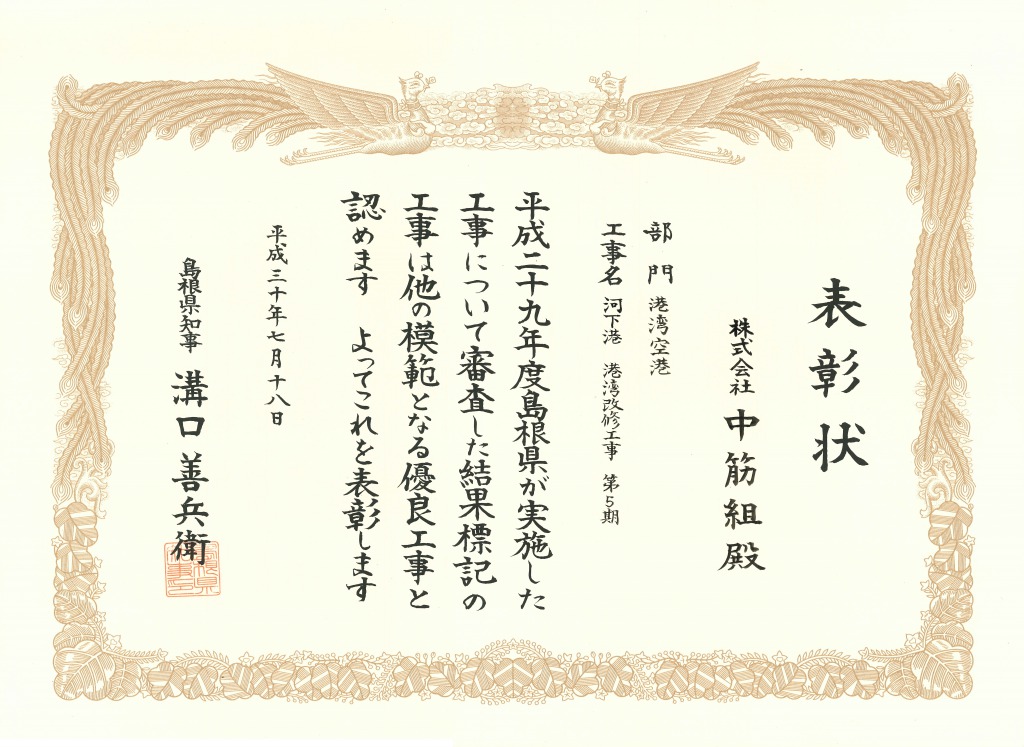 表彰状
株式会社 中筋組 殿
部門 港湾空港
工事名 河下港 港湾改修工事 第5期
平成二十九年度島根県が実施した
工事について審査した結果標記の
工事は他の模範となる優良工事と
認めます よってこれを表彰します
平成三十年七月十八日
島根県知事 溝口善兵衛